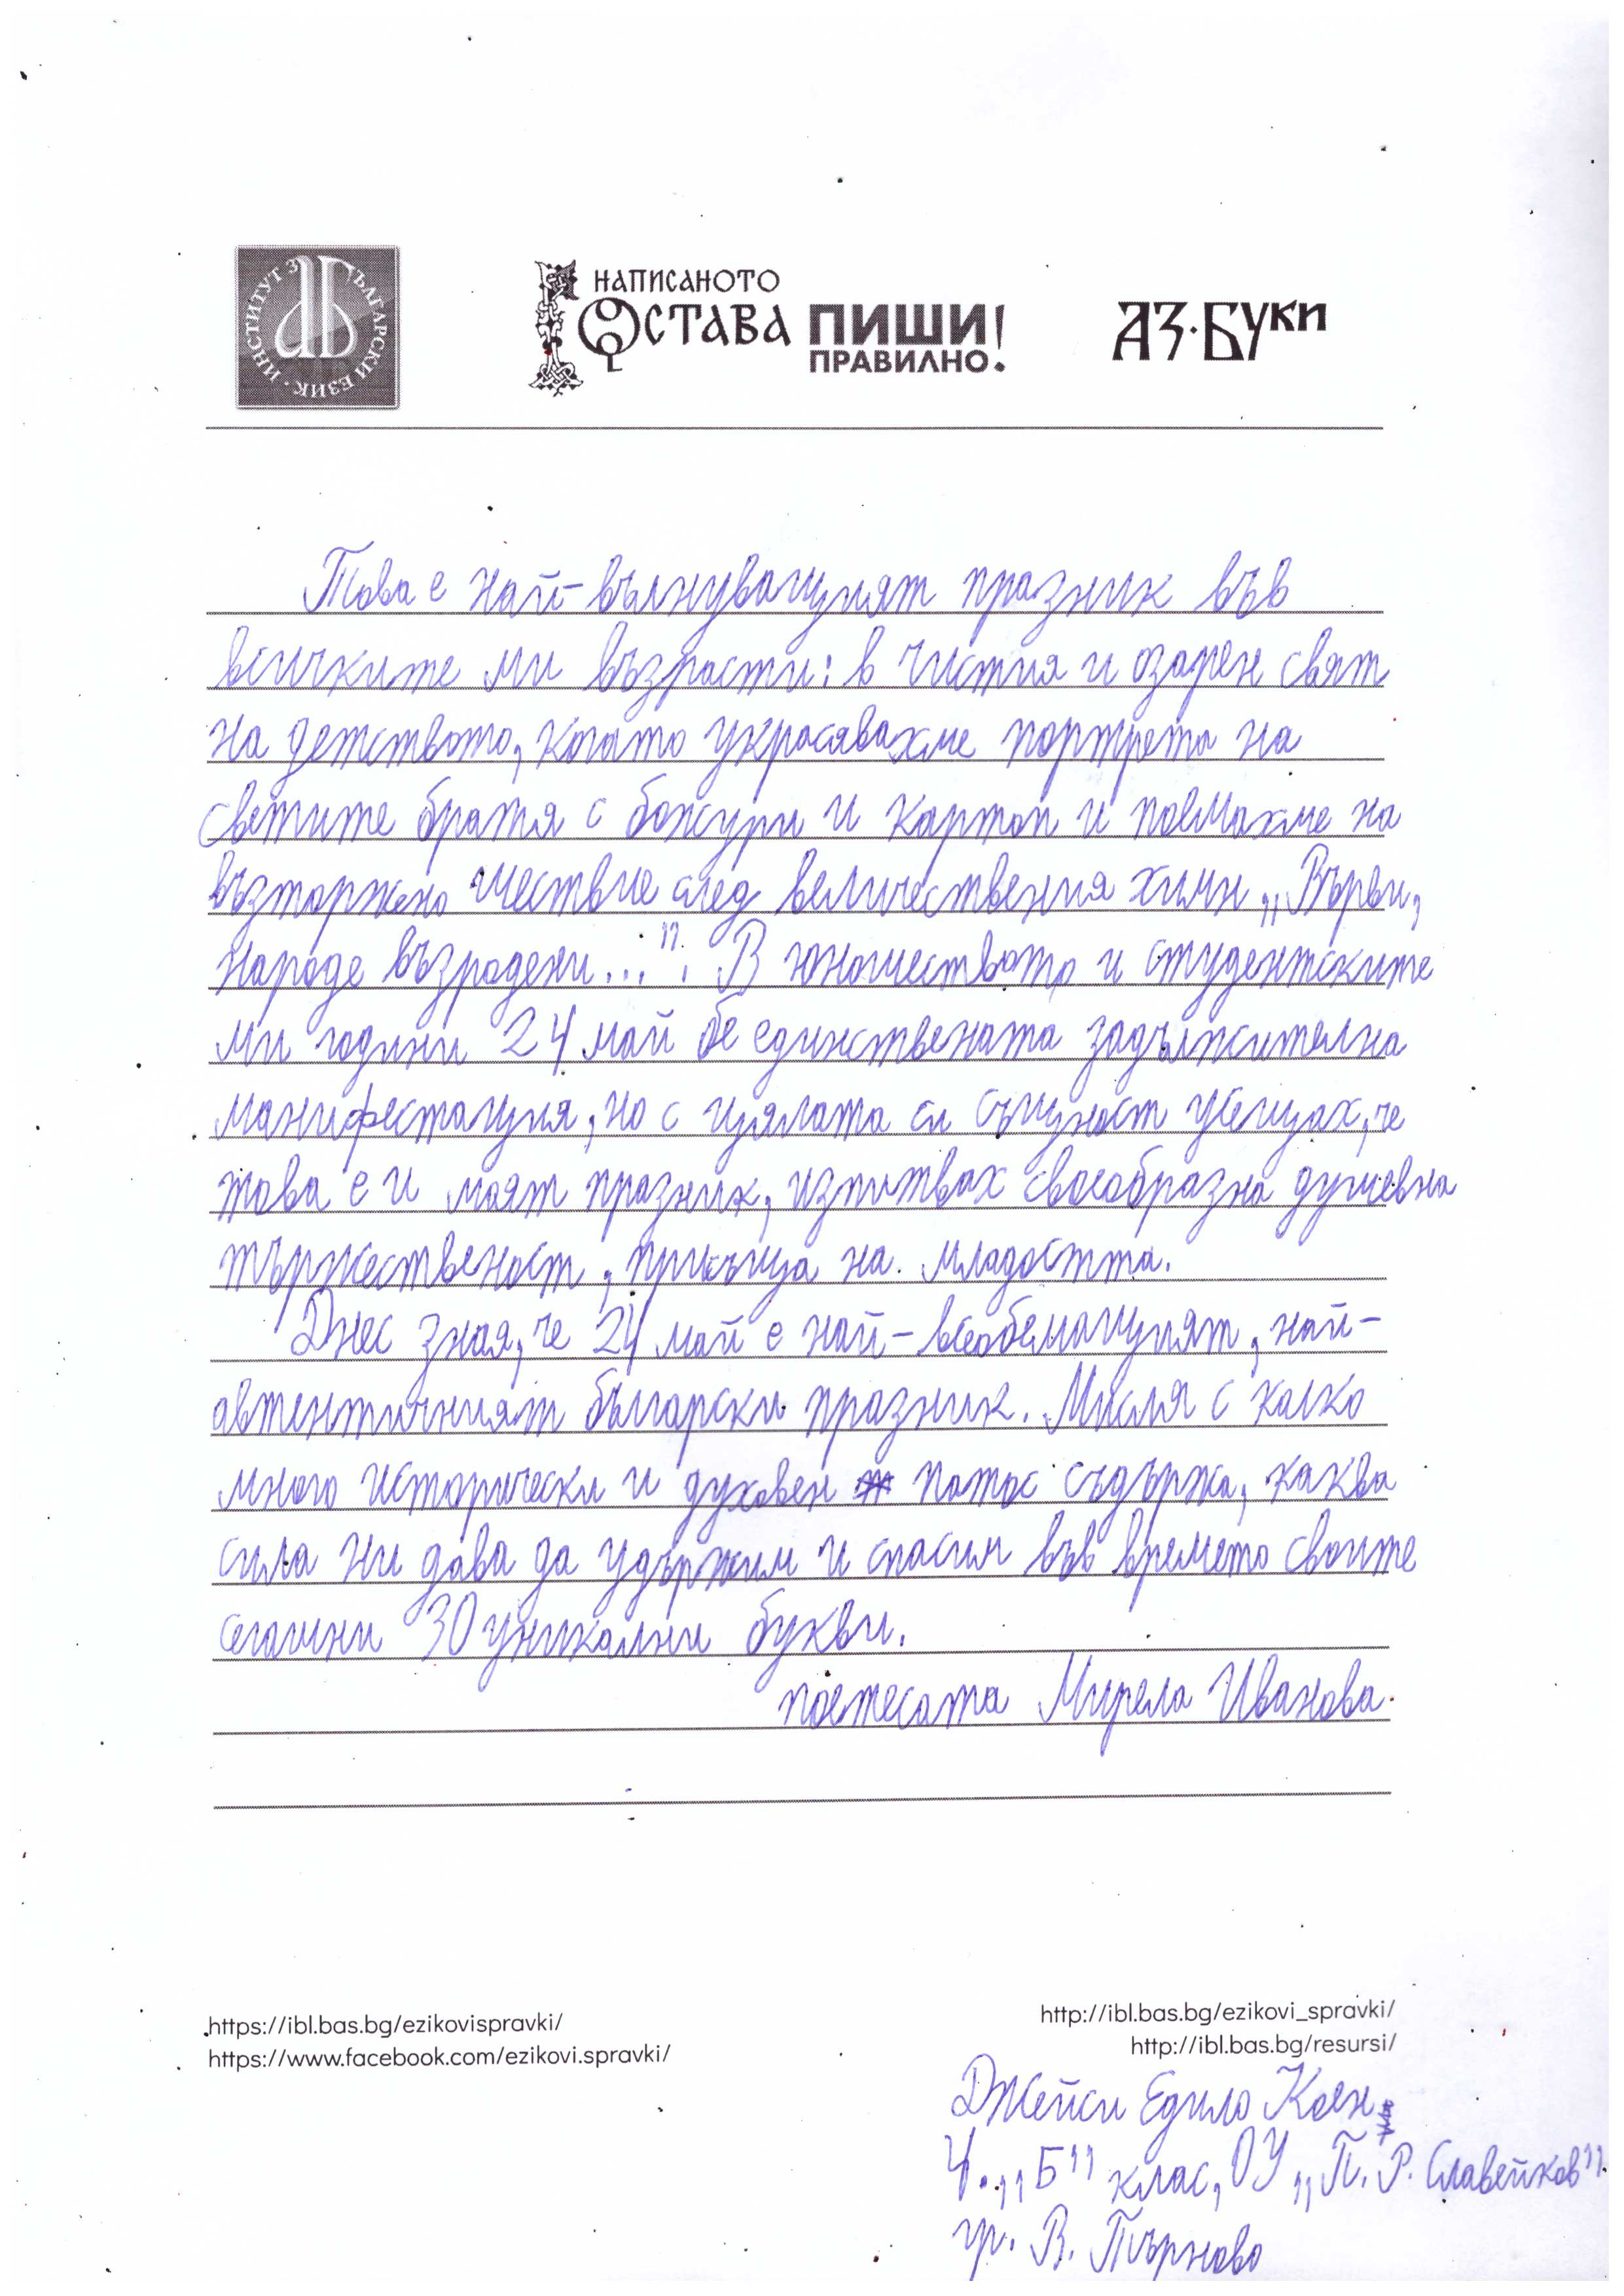 ИНСТИТУТ ЗА БЪЛГАРСКИ ЕЗИК
НАПИСАНОТО
ОСТАВА ПИШИ!
ПРАВИЛНО.
АЗ·БУКИ
Това е най-вълнуващият празник във
всичките ми възрасти: в чистия и озарен свят
на детството, когато украсявахме портрета на
светите братя с божури и картон и поемахме на
възторжено шествие след величествения химн „Върви,
народе възродени...". В юношеството и студентските
ми години 24 май бе единствената задължителна
манифестация, но с цялата си същност усещах, че
това е и моят празник, изпитвах своеобразна душевна
тържественост, присъща на младостта.
Днес зная, че 24 май е най-всеобемащият, най-
автентичният български празник. Мисля с колко
много исторически и духовен патос съдържа, каква
сила ни дава да удържим и спасим във времето своите
сегашни 30 уникални букви.
поетесата Мирела Иванова
https://ibl.bas.bg/ezikovispravki/
https://www.facebook.com/ezikovi.spravki/
http://ibl.bas.bg/ezikovi_spravki/
http://ibl.bas.bg/resursi/
Джейси Едило Коен
4. „Б" клас, ОУ „П. Р. Славейков".
гр. В. Търново